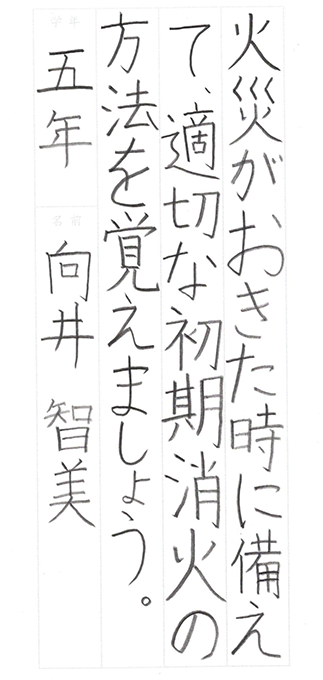 火災がおきた時に備え
て、適切な初期消火の
方法を覚えましょう。
学年
五年
名前
向井 智美